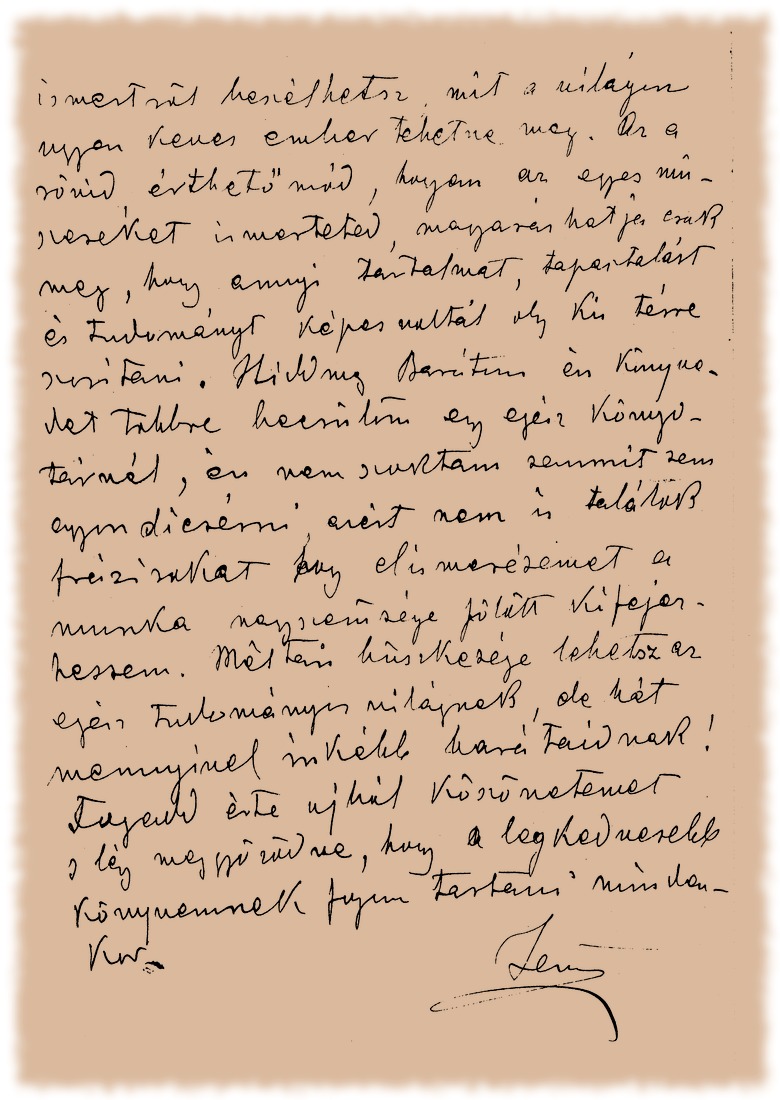 ismertről beszélhetsz, mit a világon
ugyan kevés ember tehetne meg. Az a
rövid, érthető mód, hogyan az egyes mű-
szereket ismerteted, magyarázhatja csak
meg, hogy annyi tartalmat, tapasztalást
és tudományt képes voltál oly kis térre
szorítani. Hidd meg Barátom én könyve-
det többre becsülöm egy egész könyv-
tárnál, én nem szoktam semmit sem
agyon dicsérni, azért nem is találok
frázisokat hogy elismerésemet a
munka nagyszerűsége fölött kifejez-
hessem. Méltán büszkesége lehetsz az
egész tudományos világnak, de hát
mennyivel inkább barátaidnak!
Fogadd érte ujból köszönetemet
s légy meggyőződve, hogy a legkedvesebb
könyvemnek fogom tartani minden-
kor.
Jenő